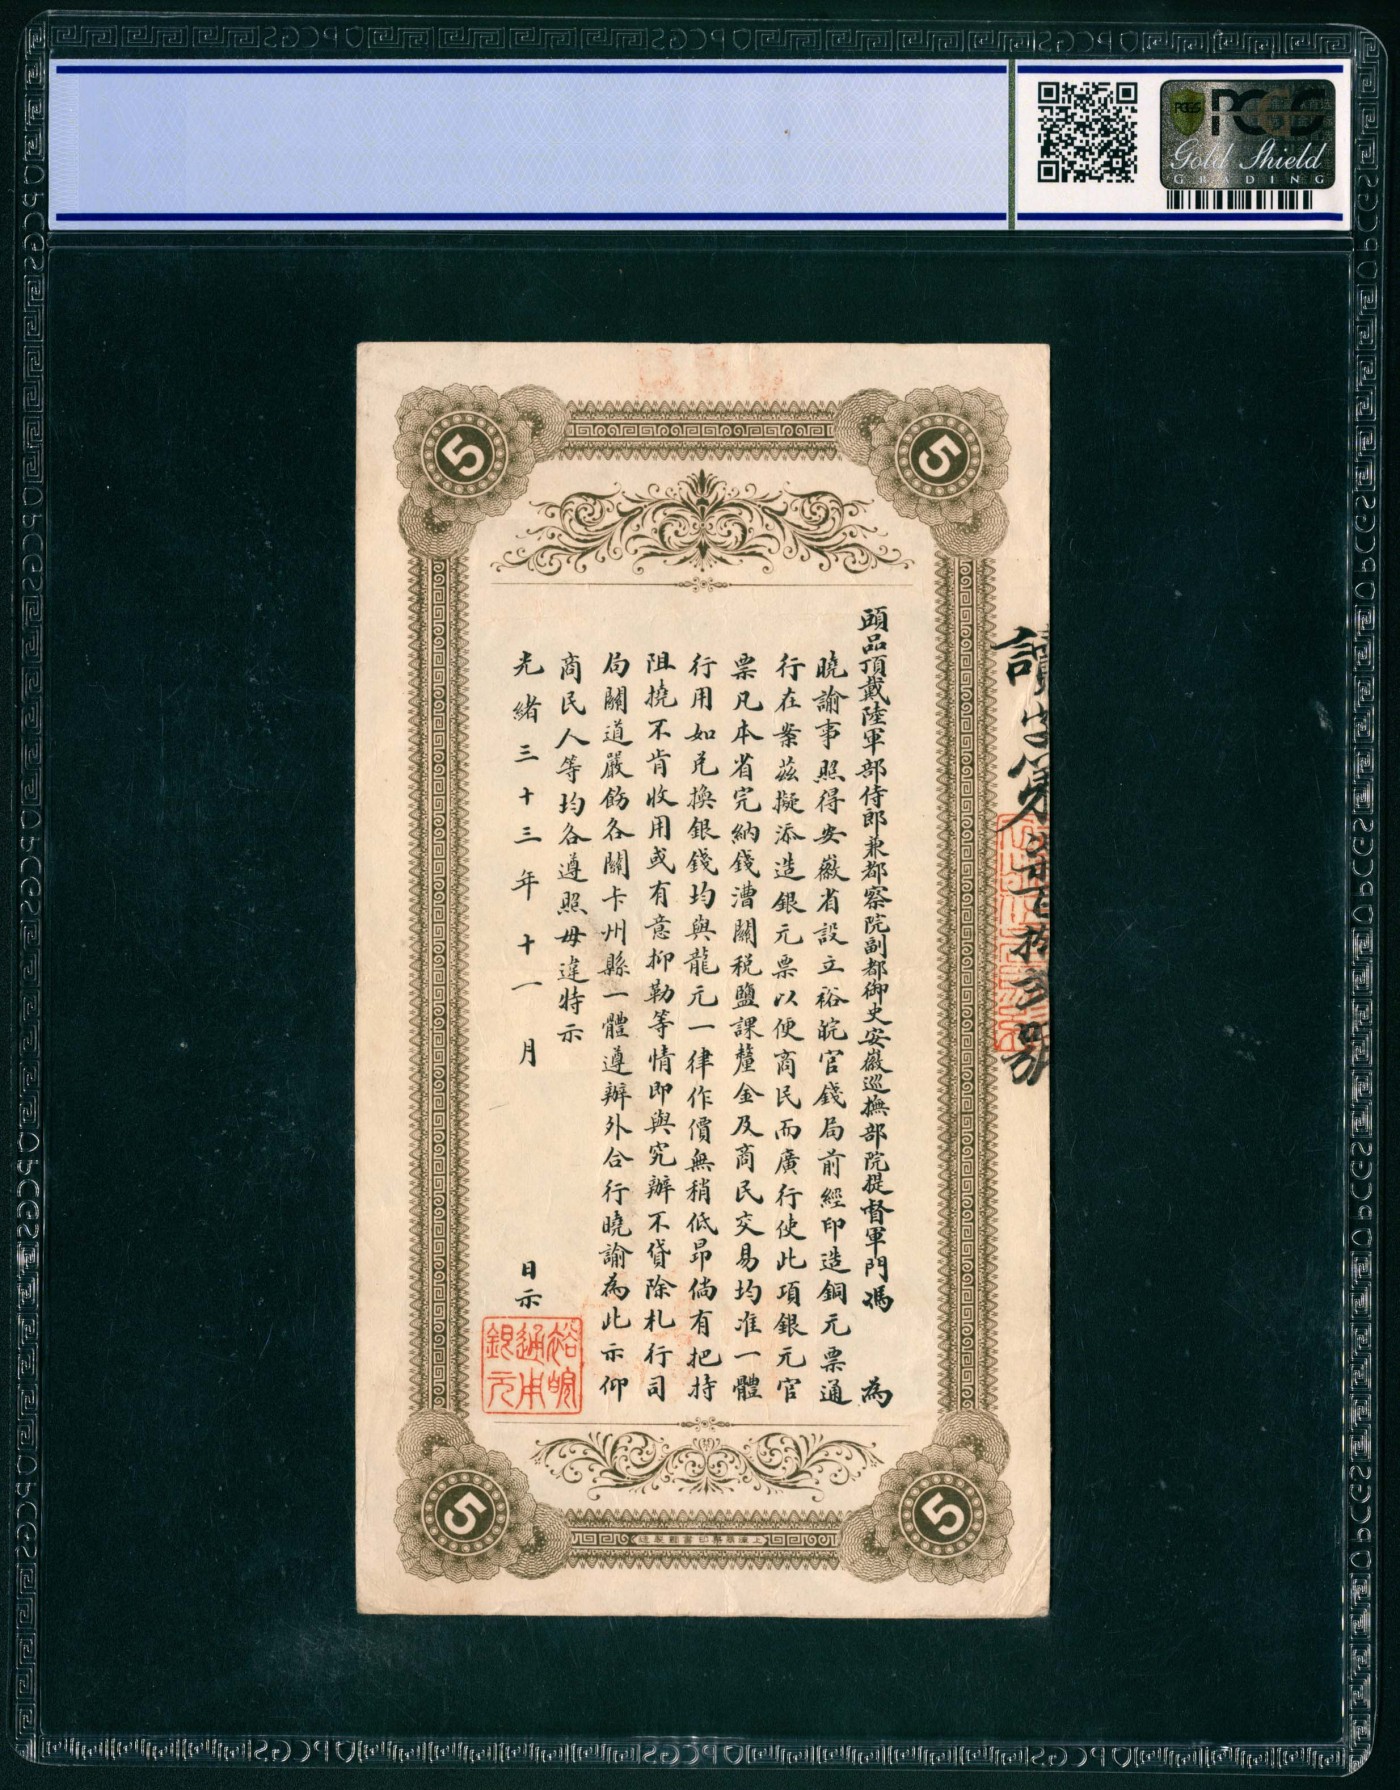 PCGS
PCGS
Gold Shield
GRADING
5
5
頭品頂戴陸軍部侍郎兼都察院副都御史安徽巡撫部院提督軍門馮 為
曉諭事照得安徽省設立裕皖官錢局前經印造銅元票通
行在案茲擬添造銀元票以便商民而廣行使此項銀元官
票凡本省完納錢漕關税鹽課釐金及商民交易均准一體
行用如兑換銀錢均與龍元一律作價無稍低昂倘有把持
阻撓不肯收用或有意抑勒等情即與究辦不貸除札行司
局關道嚴飭各關卡州縣一體遵辦外合行曉諭為此示仰
商民人等均各遵照毋違特示
光緒三十三年十一月 日示
裕皖
通用
銀元
5
5